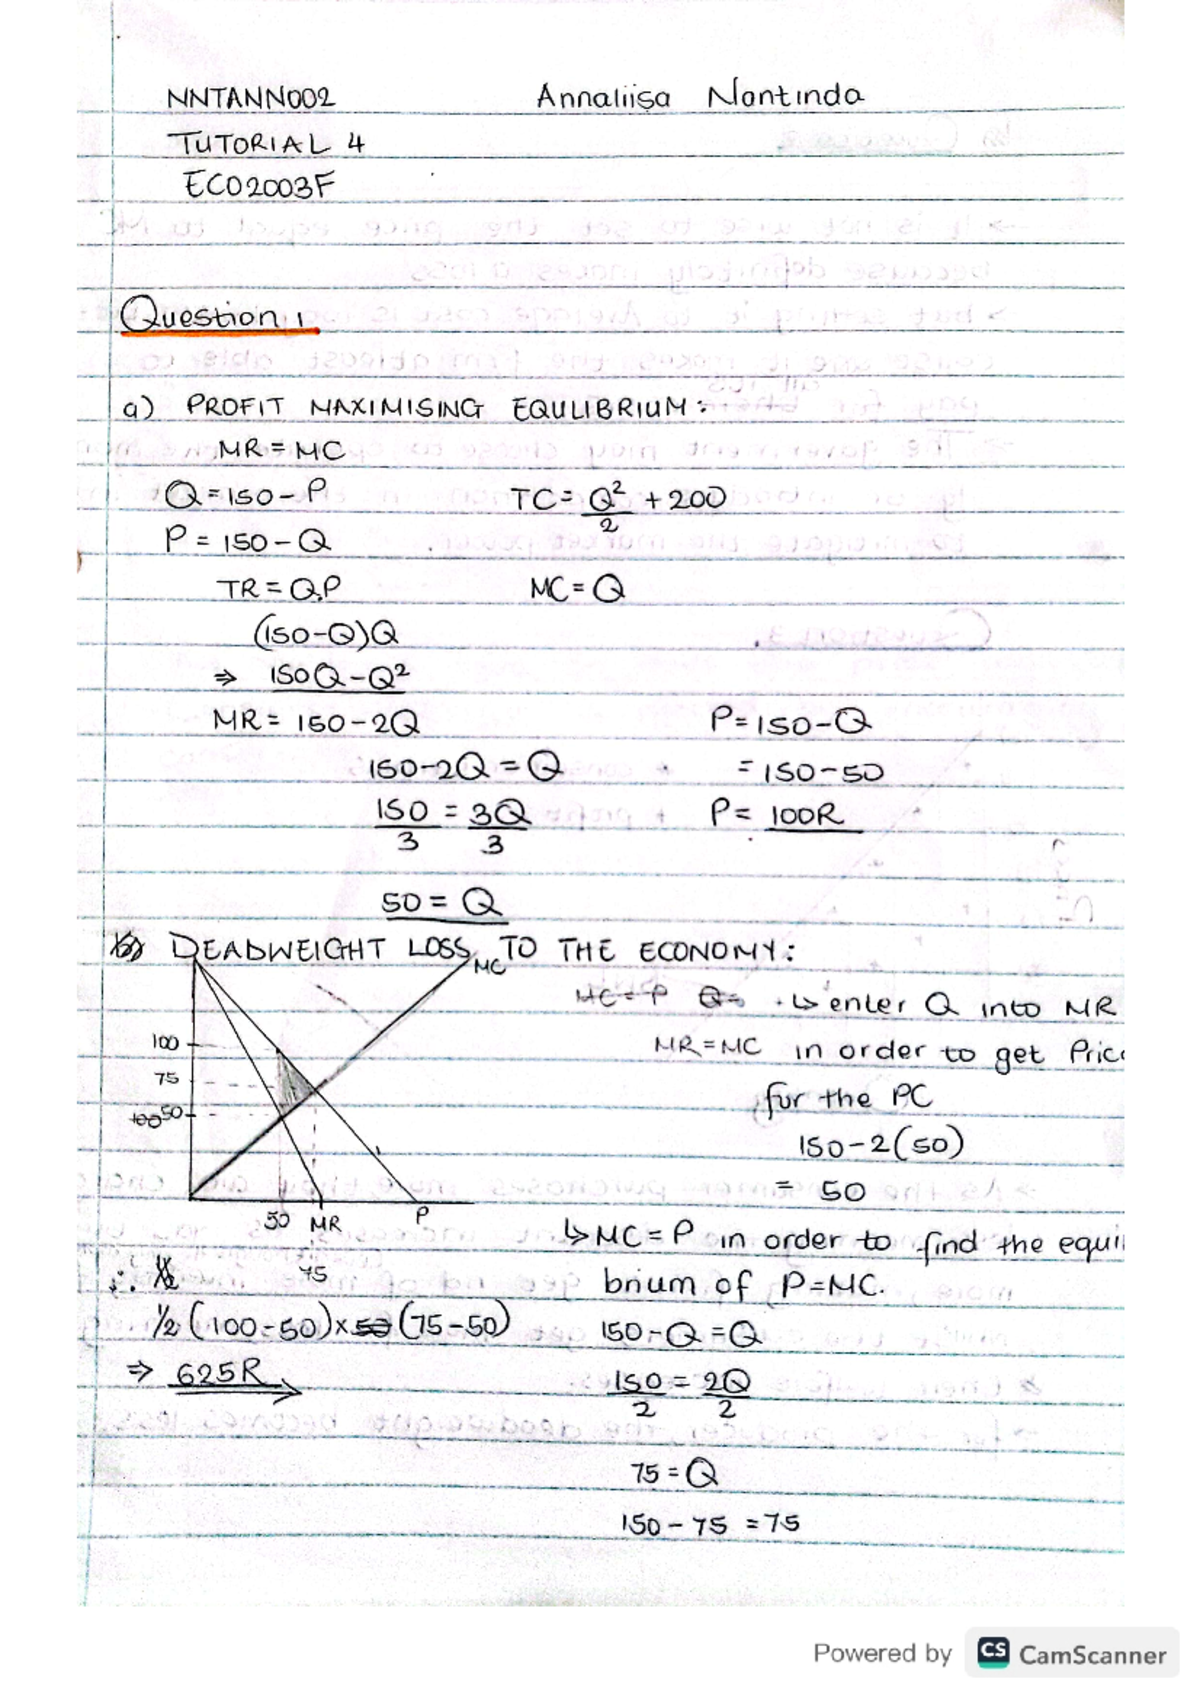 NNTANN002 Annaliisa Nantinda
TUTORIAL 4
ECO2003F
Question 1
a) PROFIT MAXIMISING EQULIBRIUM:
MR = MC
Q = 150 - P TC = Q²/2 + 200
P = 150 - Q
TR = Q.P MC = Q
(150-Q)Q
⇒ 150Q - Q²
MR = 150 - 2Q P = 150 - Q
150 - 2Q = Q = 150 - 50
150/3 = 3Q/3 P = 100R
50 = Q
b) DEADWEIGHT LOSS TO THE ECONOMY:
MC
MC = P Q= ↳ enter Q into MR
100 MR = MC in order to get Pric
75
50 for the PC
150 - 2(50)
= 50
50 MR P
75
↳ MC = P in order to find the equi
brium of P = MC.
∴ ½
½ (100-50) x 50 (75-50) 150 - Q = Q
⇒ 625R 150/2 = 2Q/2
75 = Q
150 - 75 = 75
Powered by CS CamScanner